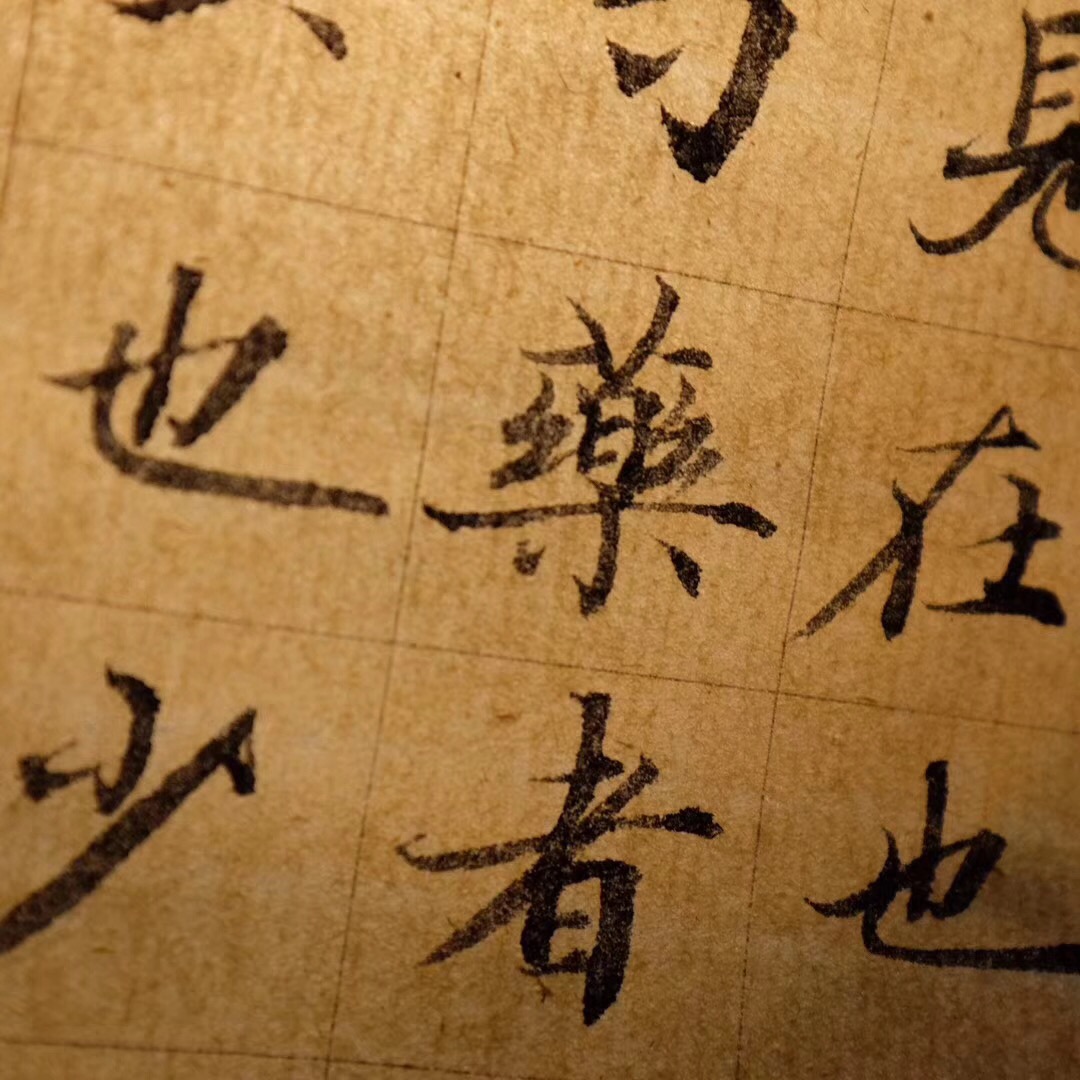 見在也
藥者
也少